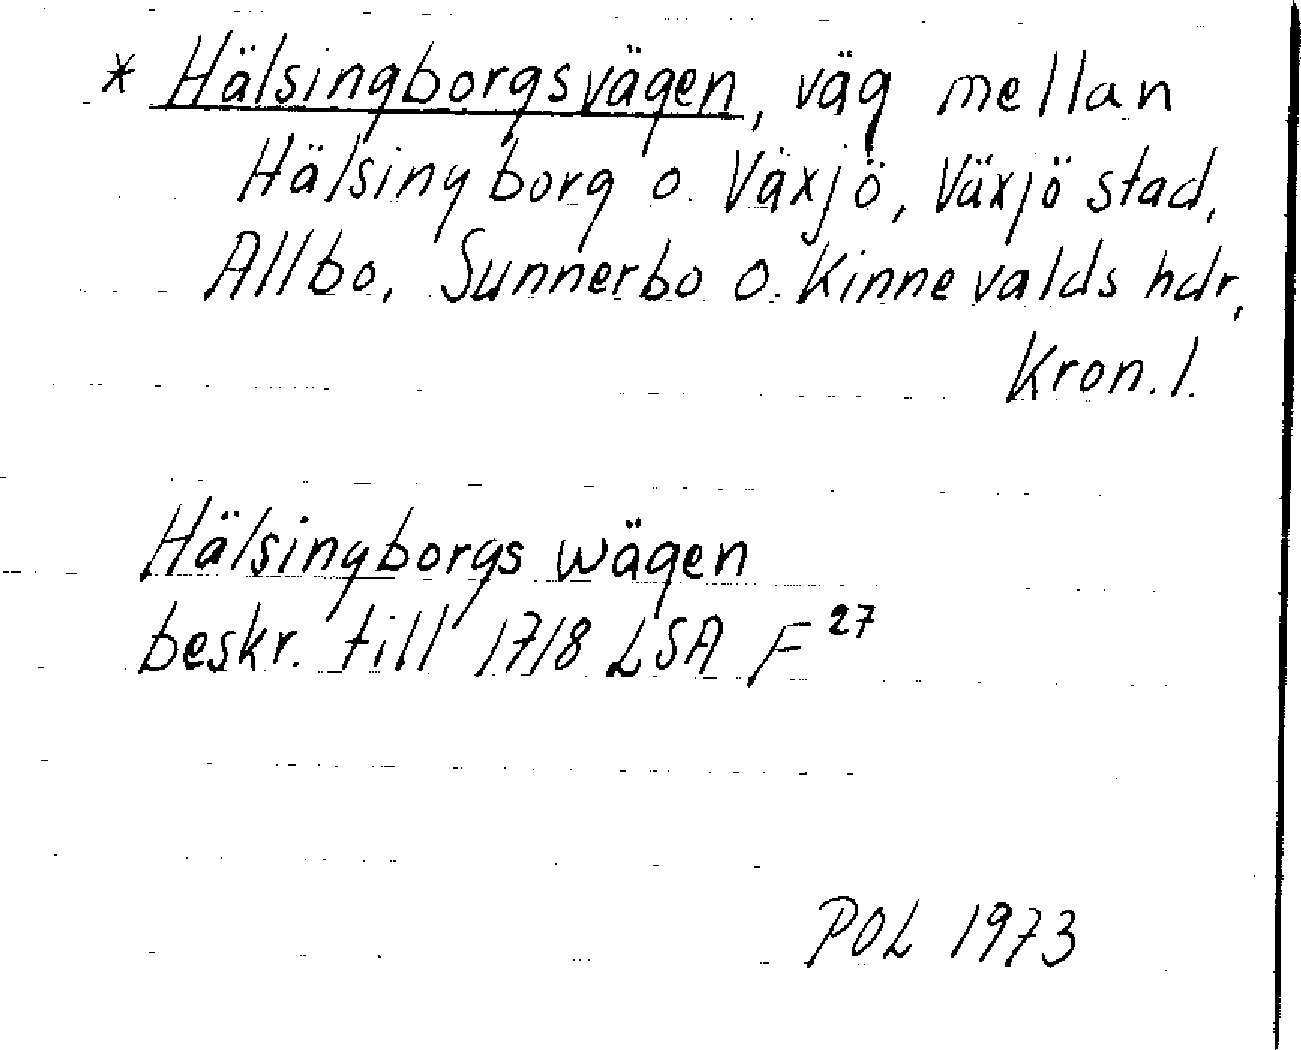 * Hälsingborgsvägen, väg mellan
Hälsingborg o. Växjö, Växjö stad,
Allbo, Sunnerbo o. Kinnevalds hdr,
Kron. l.
Hälsingborgs wägen
beskr. till 1718 LSA F²⁷
POL 1973